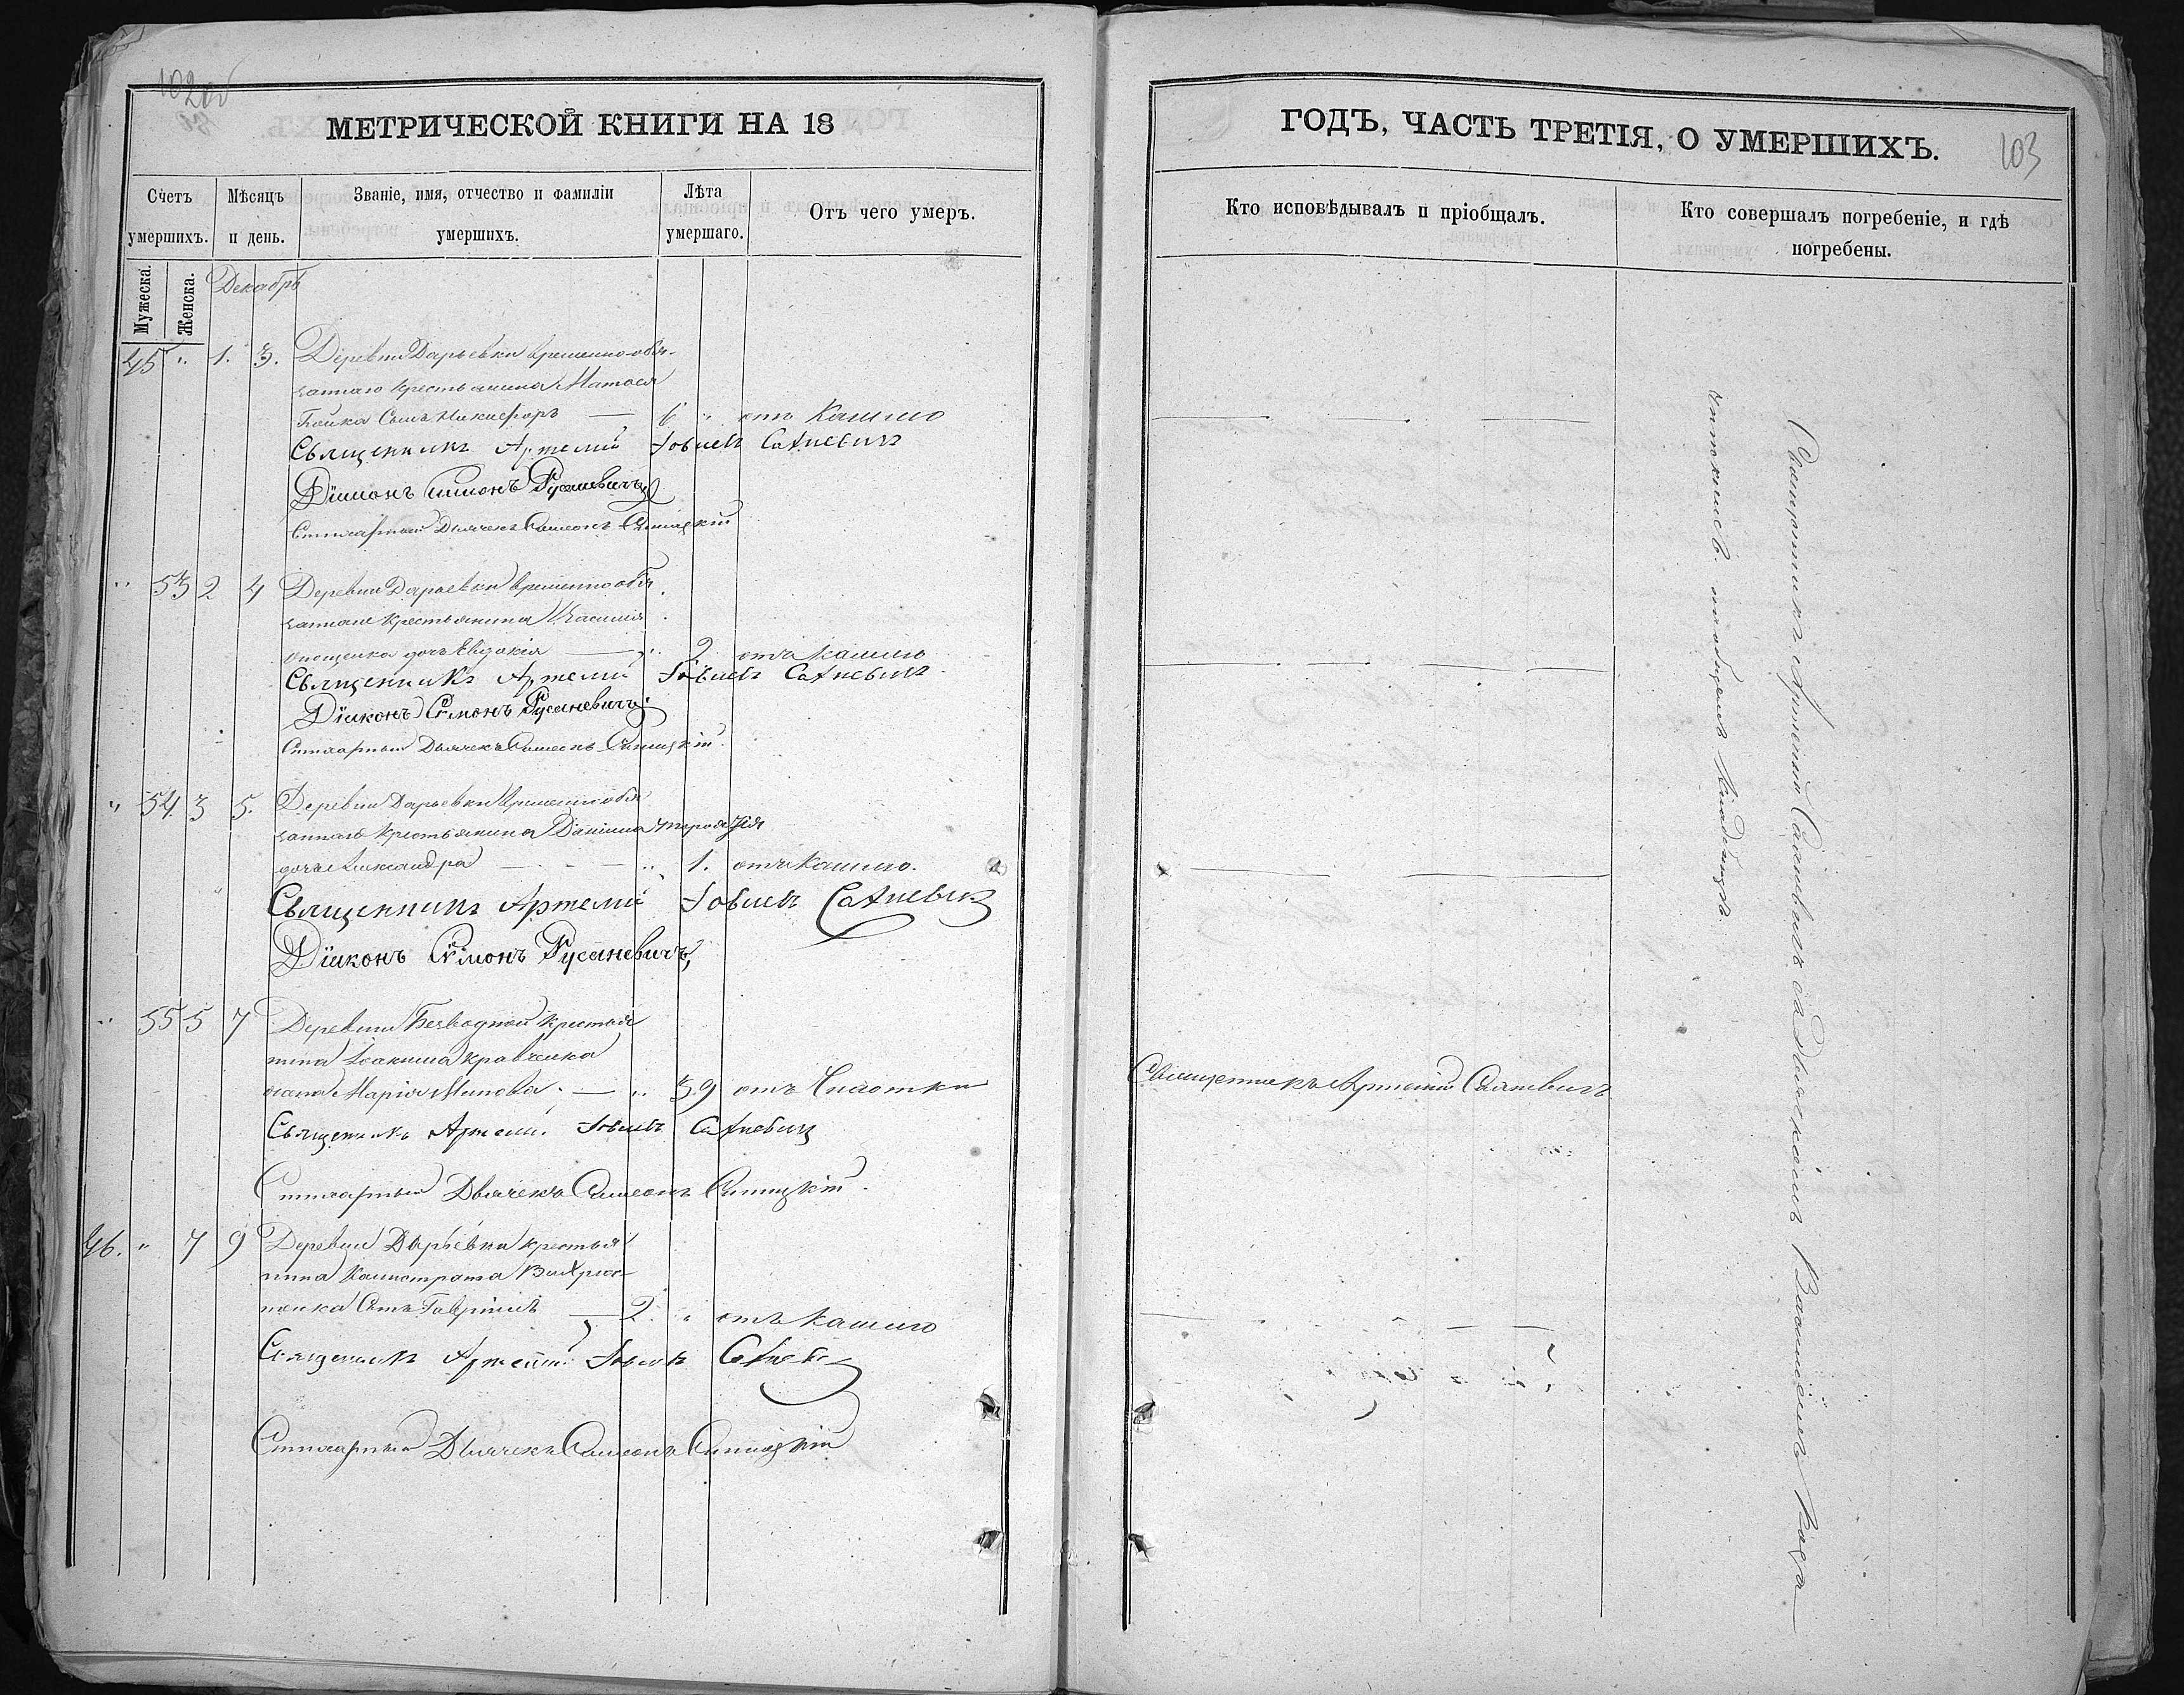 102об
МЕТРИЧЕСКОЙ КНИГИ НА 18
Счетъ умершихъ.
Мужеска.
Женска.
Мѣсяцъ и день.
Званіе, имя, отчество и фамиліи умершихъ.
Лѣта умершаго.
Отъ чего умеръ.
Декабрь
45 " 1. 3. Деревни Дарьевки временно-обя-
заннаго крестьянина
Бойка Сынъ Никифоръ — 6 " отъ Кашлю
Священникъ Артемій Іовлевъ Сахневичъ
Діаконъ Симонъ Русаневичъ
Стихарный Дьячекъ Симеонъ Синицкій
" 53 2 4 Деревни Дарьевки временнообя
заннаго крестьянина Василія
дочь Евдокія — " 2 отъ кашлю
Священникъ Артемій Іовлевъ Сахневичъ
Діаконъ Симонъ Русаневичъ
Стихарный Дьячекъ Симеонъ Синицкій.
" 54 3 5. Деревни Дарьевки временнообя
заннаго крестьянина Даніила
дочь Александра — " 1. отъ кашлю.
Священникъ Артемій Іовлевъ Сахневичъ
Діаконъ Симонъ Русаневичъ
" 55 5 7 Деревни Безводной крестья
нина Іоакима Кравченка
жена Марія — " 39 отъ Чахотки
Священникъ Артемій Іовлевъ Сахневичъ
Стихарный Дьячекъ Симеонъ Синицкій.
46. " 7 9 Деревни Дарьевки крестья
нина Калистрата
Сынъ Гавріилъ — 2. " отъ кашлю
Священникъ Артемій Іовлевъ
Стихарный Дьячекъ Симеонъ Синицкій
ГОДЪ, ЧАСТЬ ТРЕТІЯ, О УМЕРШИХЪ.
103
Кто исповѣдывалъ и пріобщалъ.
Кто совершалъ погребеніе, и гдѣ погребены.
Священникъ Артемій Сахневичъ
Священникъ Артемій Сахневичъ съ Діакономъ
на общемъ кладбищѣ.